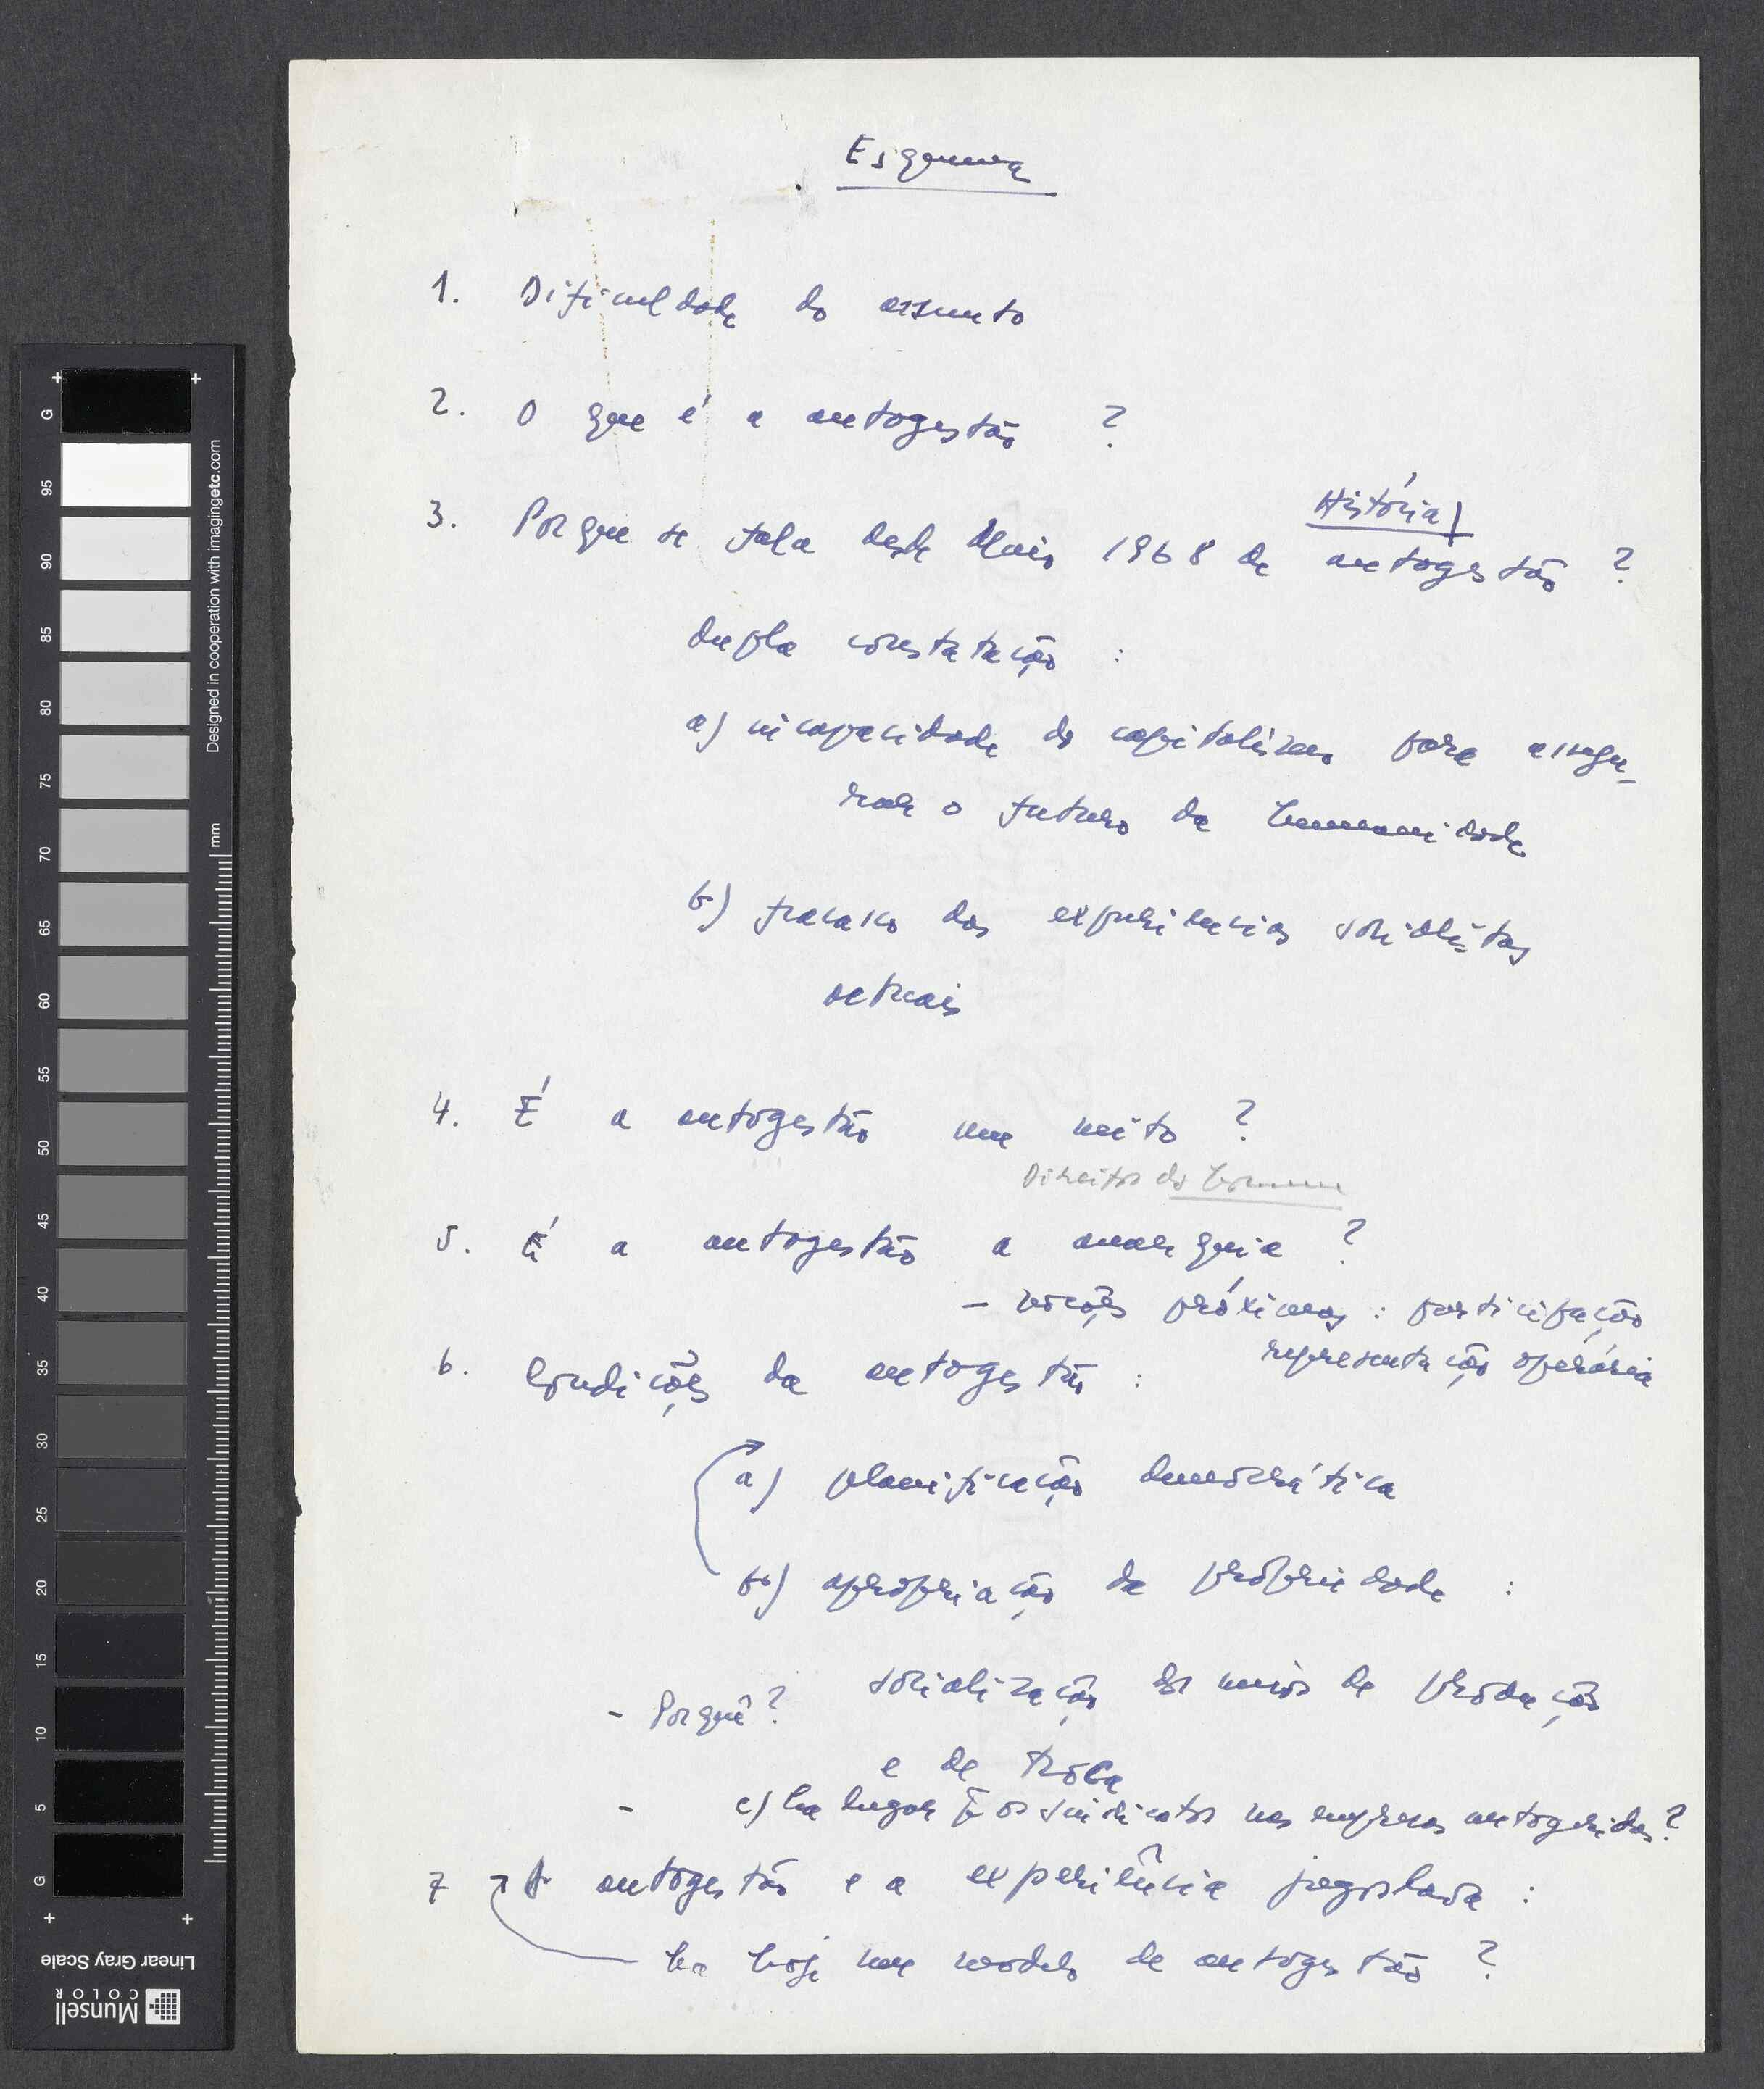 Esquema
1. Dificuldade do assunto
2. O que é a autogestão ?
História
3. Porque se fala desde Maio 1968 de autogestão ?
dupla constatação :
a) incapacidade do capitalismo para assegu-
rar o futuro da humanidade
b) fracasso das experiências socialistas
actuais
4. É a autogestão um mito ?
Direitos do homem
5. É a autogestão a anarquia ?
- noções próximas : participação
representação operária
6. Condições da autogestão :
a) planificação democrática
b) apropriação da propriedade :
socialização dos meios de produção
- Porquê ?
e de troca
- c) há lugar p/ os sindicatos nas empresas autogeridas ?
7 A autogestão e a experiência jugoslava :
há hoje um modelo de autogestão ?
G 95 90 85 80 75 70 65 60 55 50 45 40 35 30 25 20 15 10 5 G
mm
Designed in cooperation with imagingetc.com
Linear Gray Scale
Munsell
COLOR